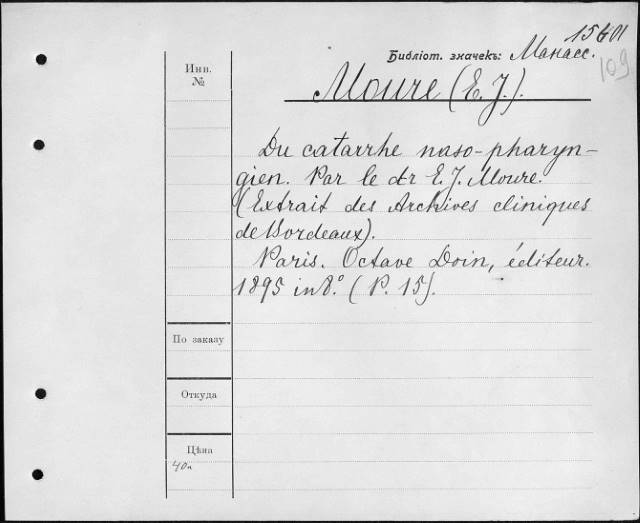 15601
Библіот. значекъ: Манасс.
109
Инв.
№
Moure (E. J.).
Du catarrhe naso-pharyn-
gien. Par le dr E. J. Moure.
(Extrait des Archives cliniques
de Bordeaux).
Paris. Octave Doin, éditeur.
1895 in 8.° (P. 15).
По заказу
Откуда
Цѣна
40к